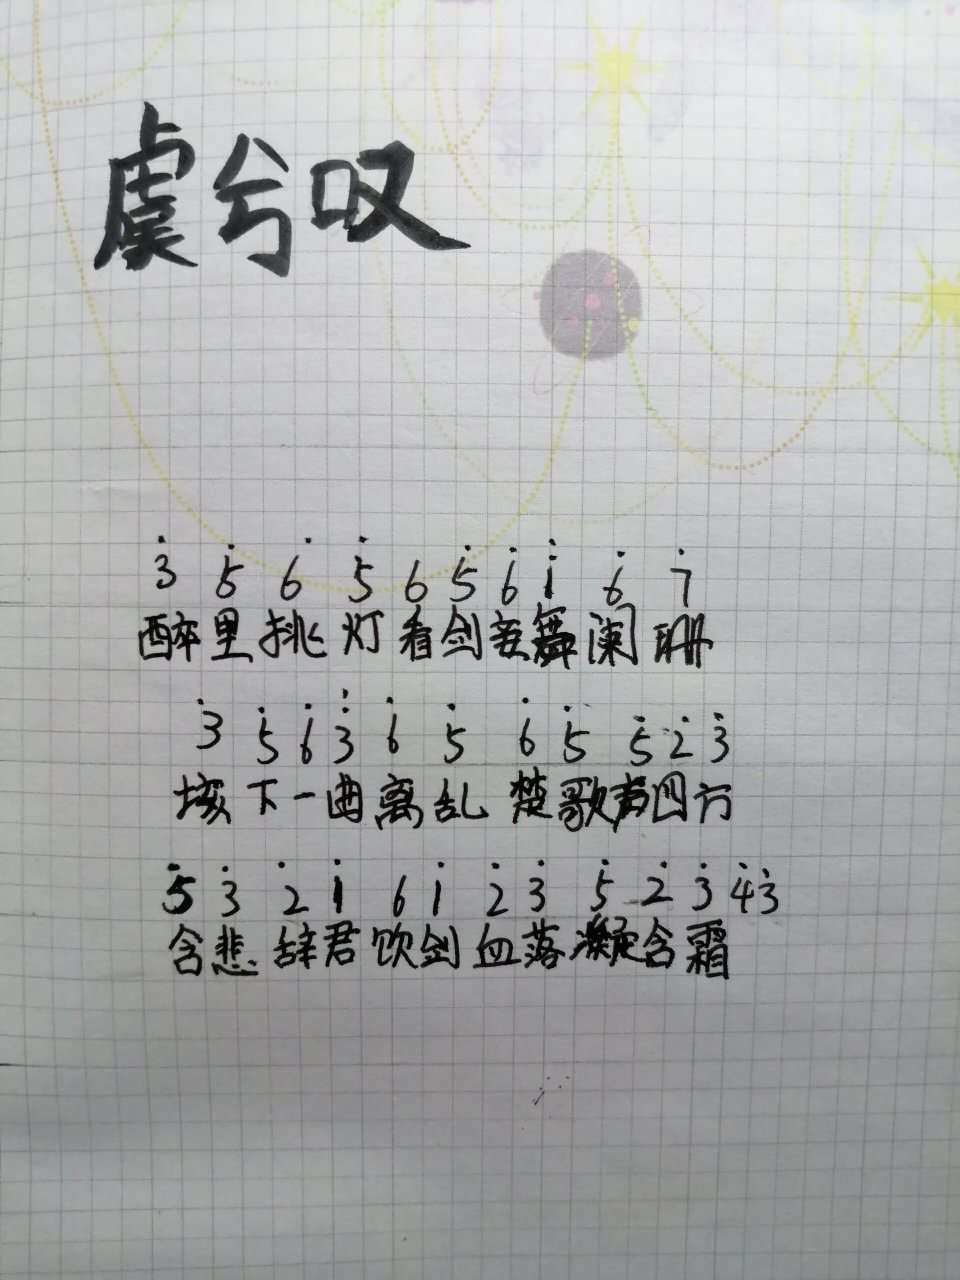 虞兮叹
3̇ 5̇ 6̇ 5̇ 6 5̇ 6̇ i̇ 6̇ 7̇
醉里挑灯看剑妾舞阑珊
3̇ 5̇ 6̇ 3̇ 6̇ 5̇ 6̇ 5̇ 5̇ 2̇ 3̇
垓下一曲离乱 楚歌声四方
5̇ 3̇ 2̇ 1̇ 6 1̇ 2̇ 3̇ 5̇ 2̇ 3̇ 4̇3̇
含悲辞君饮剑血落凝含霜